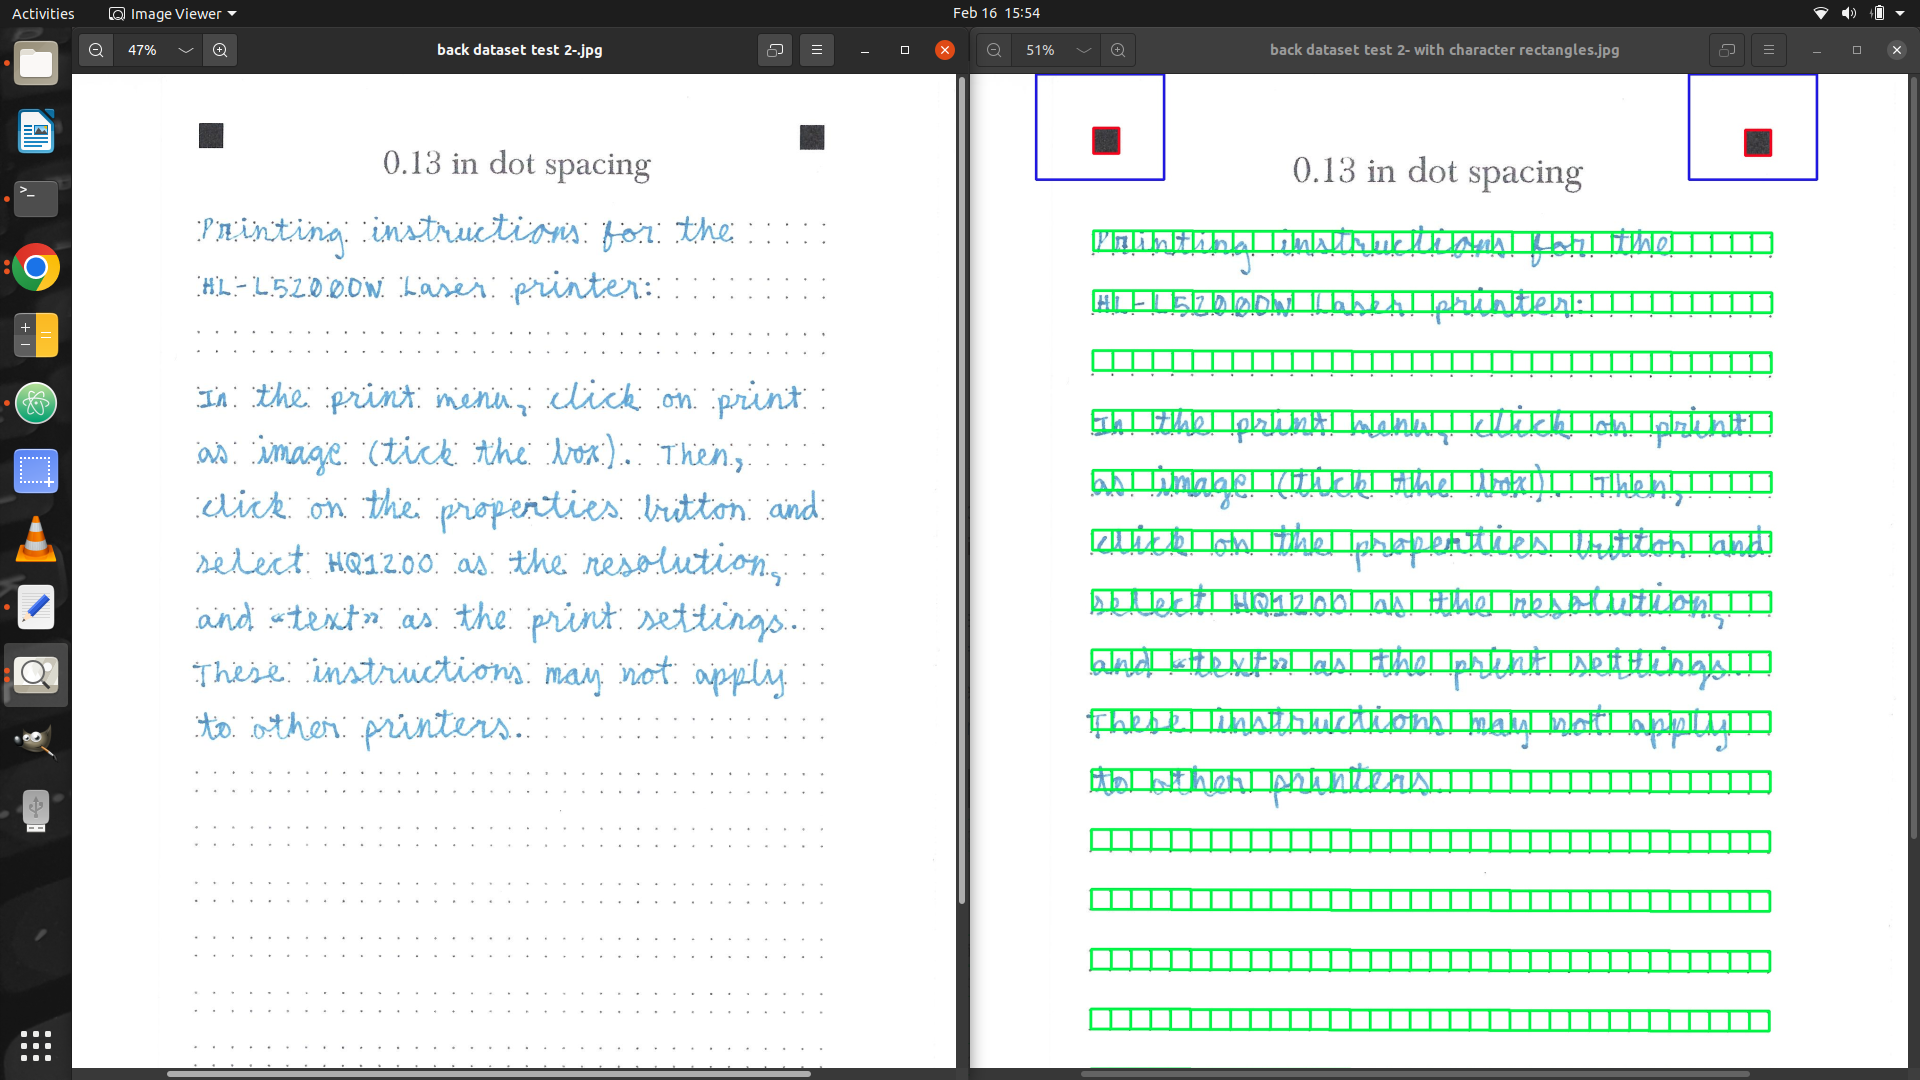 Activities
Image Viewer
Feb 16 15:54
47%
back dataset test 2-.jpg
0.13 in dot spacing
Printing instructions for the
HL-L5200DW Laser printer:
In the print menu, click on print
as image (tick the box). Then,
click on the properties button and
select HQ1200 as the resolution,
and «text» as the print settings.
These instructions may not apply
to other printers.
51%
back dataset test 2- with character rectangles.jpg
0.13 in dot spacing
Printing instructions for the
HL-L5200DW Laser printer:
In the print menu, click on print
as image (tick the box). Then,
click on the properties button and
select HQ1200 as the resolution,
and «text» as the print settings.
These instructions may not apply
to other printers.